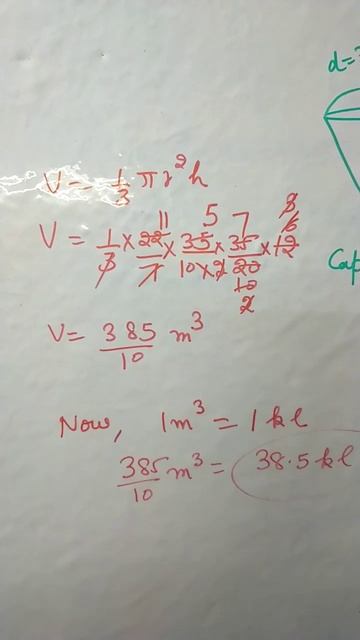 d=
V = 1/3 πr²h
V = 1/3 × 22/7 × 35/10×2 × 35/20 × 12
11 5 7 6 10 2
V = 385/10 m³
Cap
Now, 1m³ = 1 kl
385/10 m³ = 38.5 kl